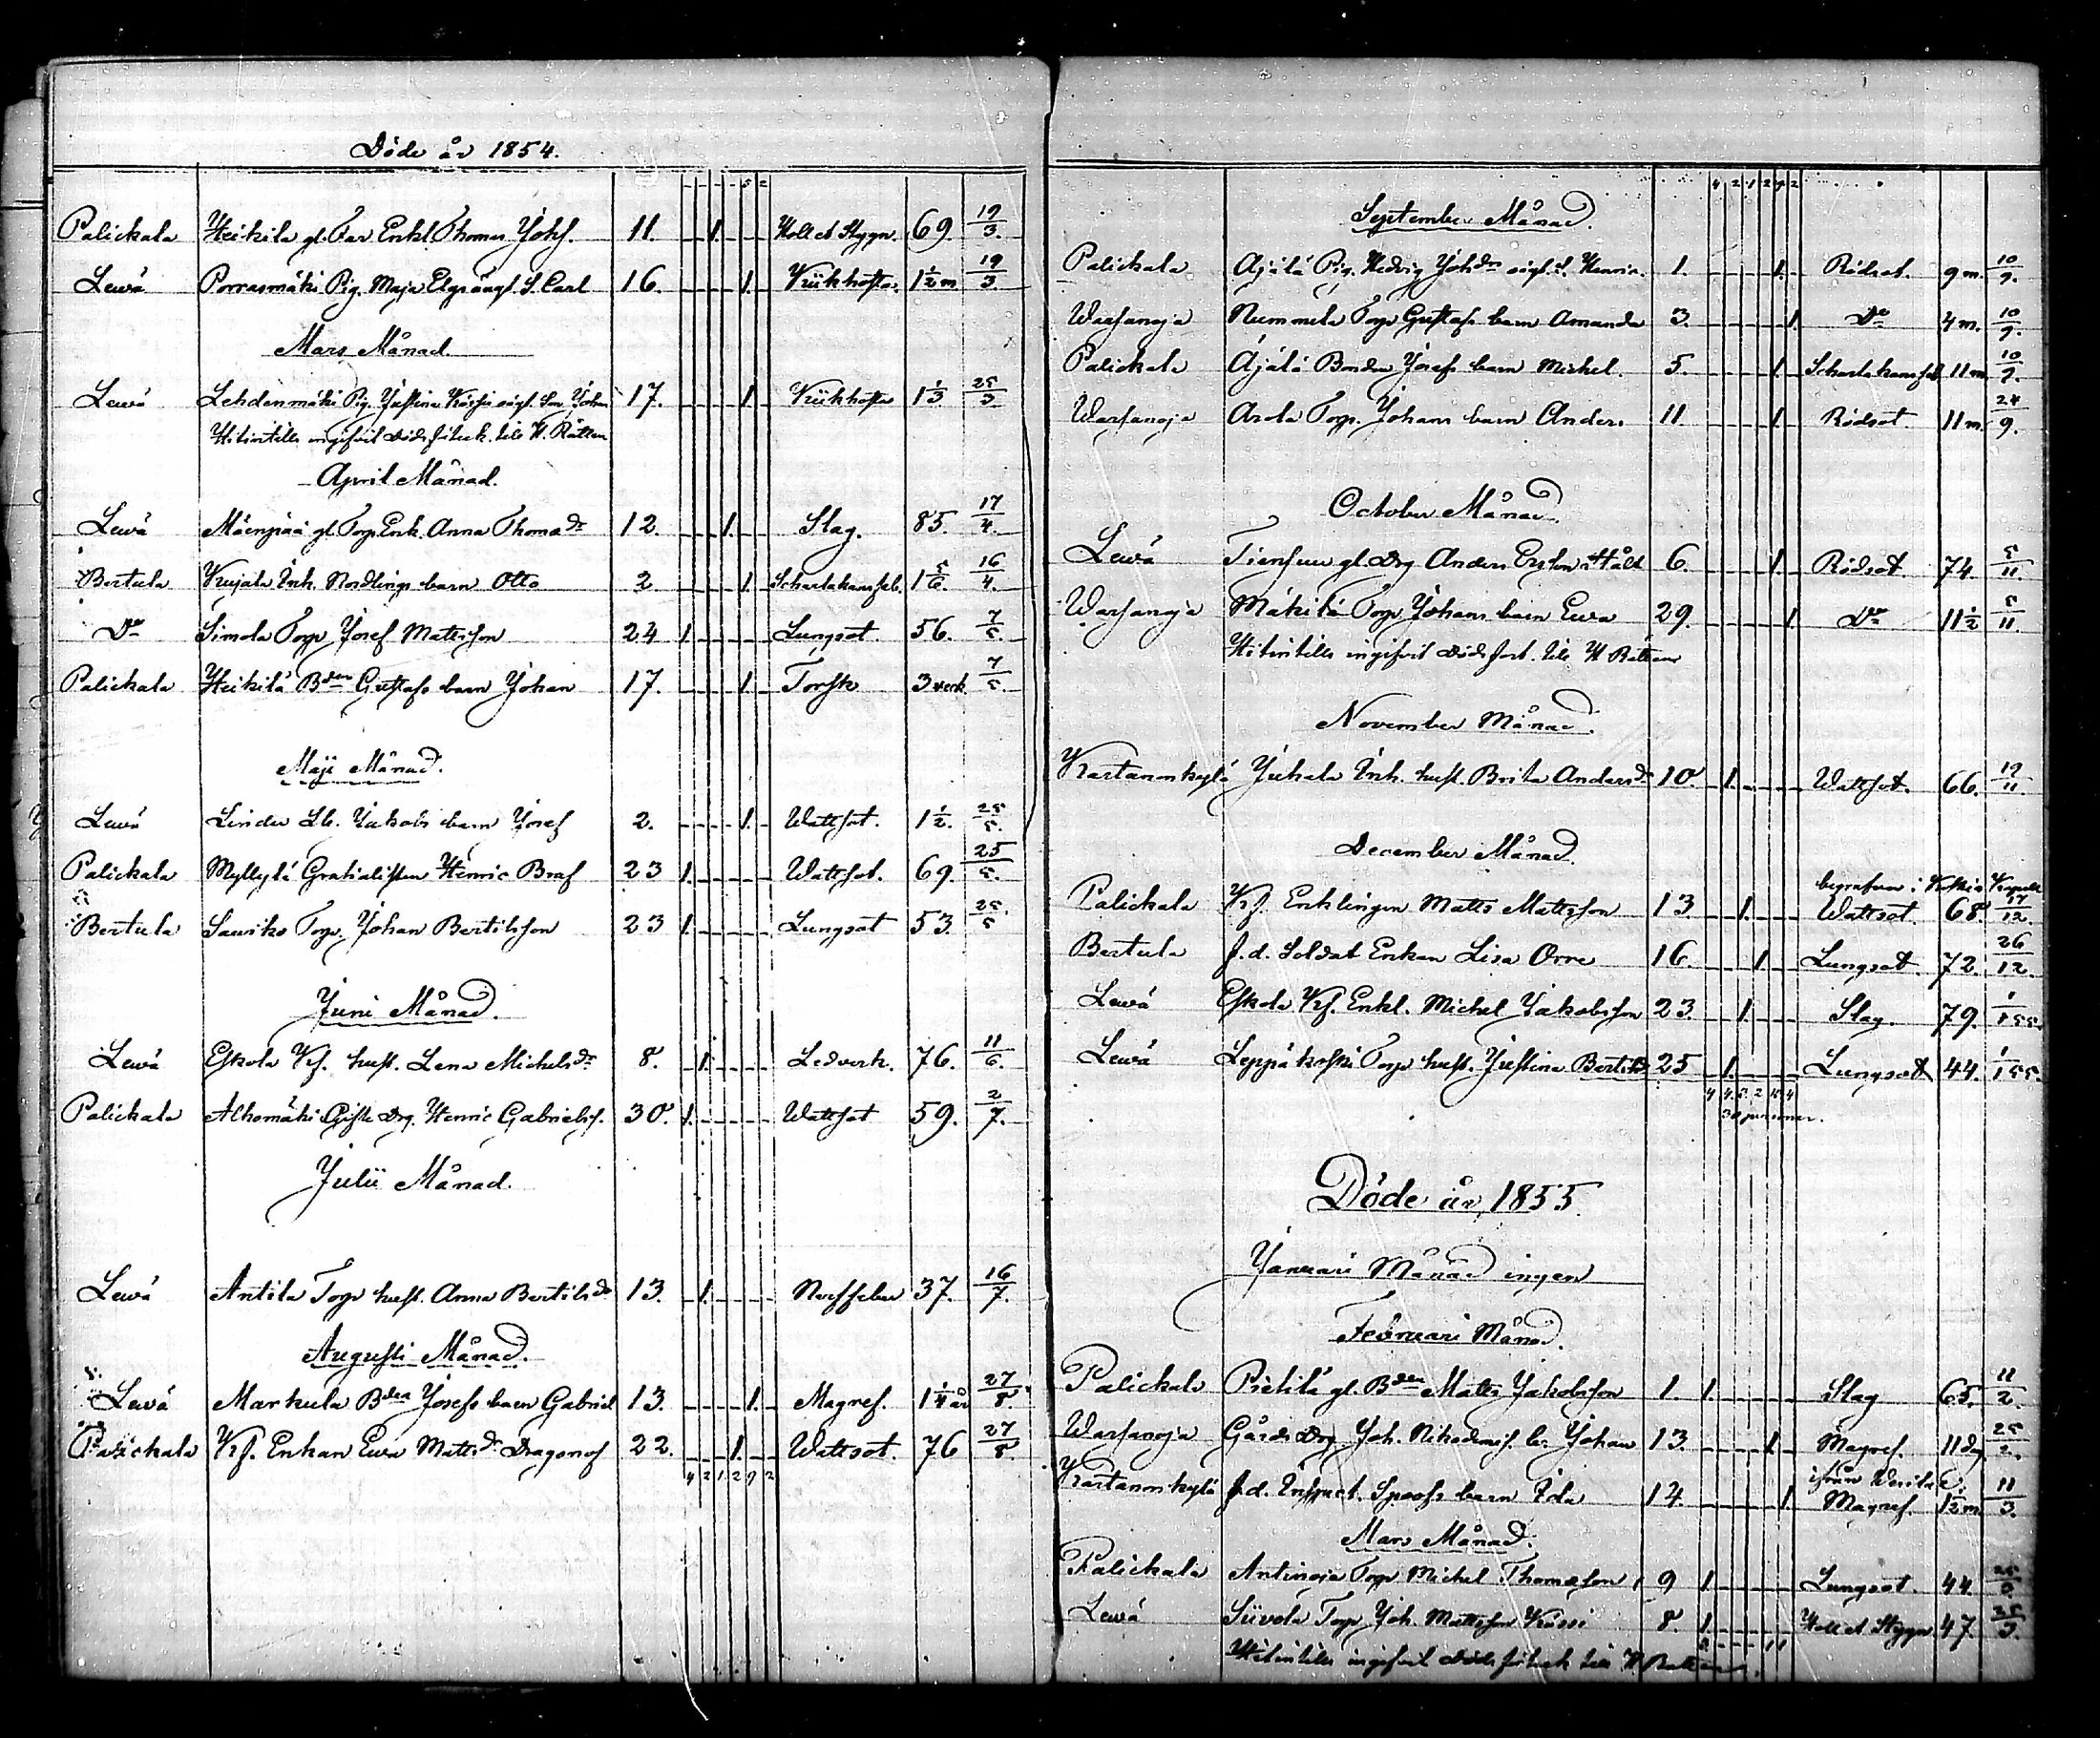 Döde år 1854.
5 2
Palickala Heikilä gl. Far Enkl. Thomas Johs. 11. 1. Håll et Stygn. 69. 19/3.
Lewä Porrasmäki Pig. Maja S. Carl 16. 1. Kikhosta. 1 1/2 m 19/3.
Mars Månad.
Lewä Lehdenmäki Pig. Justina Son Johan 17. 1 Kikhosta 1 1/3 25/3
Hitintills ingifvit till H. Rätten
April Månad.
Lewä Mäenpää gl. Torp. Enk. Anna Thomadr 12. 1. Slag. 85. 17/4.
Bertula Kujala Inh. Nordlings barn Otto 2 1 Scharlakansfeb. 1 5/6. 16/4.
Do Simola Torp. Josef Mattsson 24 1. Lungsot. 56. 7/5
Palickala Heikilä Bden Gustafs barn Johan 17. 1. Torsk 3 veck. 7/5.
Maji Månad.
Lewä Linder Jakobs barn Josef 2. 1. Wattsot. 1 1/2. 25/5.
Palickala Myllylä Gratialisten Henric Braf 23 1. Wattsot. 69. 25/5.
Bertula Sauriko Torp. Johan Bertilsson 23 1. Lungsot 53. 25/5
Juni Månad.
Lewä Eskola Kf. hust. Lena Michelsdr 8. 1. Ledverk. 76. 11/6.
Palickala Alhomäki Gifte Drg. Henric Gabrielss. 30. 1. Wattsot 59. 2/7.
Julii Månad.
Lewä Antila Torp. hust. Anna Bertilsdr 13. 1. Nerffeber 37. 16/7.
Augusti Månad.
Lewä Markula Bden Josefs barn Gabriel 13. 1. Magref. 1 1/4 år 27/8.
Palickala Kf. Enkan Ewa Mattsdr Dragonof 22. 1. Wattsot. 76 27/8.
4 2 1 2 9 2
4 2 1 2 9 2
September Månad.
Palickala Äjälä Pig. Hedvig Johdr oägt. s. Henric. 1. 1. Rödsot. 9 m. 10/9.
Warsanoja Nummela Torp. Gustafs barn Amanda 3. 1. Do 4 m. 10/9.
Palickala Äjälä Bonden Josefs barn Michel. 5. 1. Scharlakansfeb 11 m. 10/9.
Warsanoja Arola Torp. Johans barn Anders 11. 1. Rödsot. 11 m. 24/9.
October Månad.
Lewä gl. Drg Anders Ersson Ståhl 6. 1. Rödsot. 74. 5/11.
Warsanoja Mäkilä Torp. Johans barn Ewa 29. 1. Do 11 1/2 5/11.
Hitintills ingifvit till H Rätten
November Månad.
Kartanonkylä Juhala Inh. hust. Brita Andersdr 10. 1. Wattsot. 66. 19/11
December Månad.
begrafven i Kapell
Palickala Kf. Enklingen Matts Mattsson 13 1. Wattsot. 68. 17/12.
Bertula f.d. Soldat Enkan Lisa Orre 16. 1 Lungsot. 72. 26/12.
Lewä Eskola Kf. Enkl. Michel Jakobsson 23. 1. Slag. 79. 1/1 55.
Lewä Leppäkoski Torp. hust. Justina Bertilsdr 25 1. Lungsot 44. 1/1 55.
4 4. 5. 2 12. 4
30 personer.
Döde år 1855.
Januari Månad ingen
Februari Månad.
Palickala Pietilä gl. Bden Matts Jakobsson 1. 1. Slag 65. 11/2.
Warsanoja Gårds Drg Joh. b. Johan 13. 1. Magref. 11 dg 25/2.
ifrån
Kartanonkylä f.d. Inspect. Spoofs barn Ida 14. 1. Magref. 1 1/2 m. 11/3.
Mars Månad.
Palickala Antinoja Torp Michel Thomasson 9 1. Lungsot. 44. 25/3
Lewä Siivola Torp Joh. Mattsson 8. 1. Håll et Stygn 47. 25/3.
Hitintills ingifvit till H Rätten